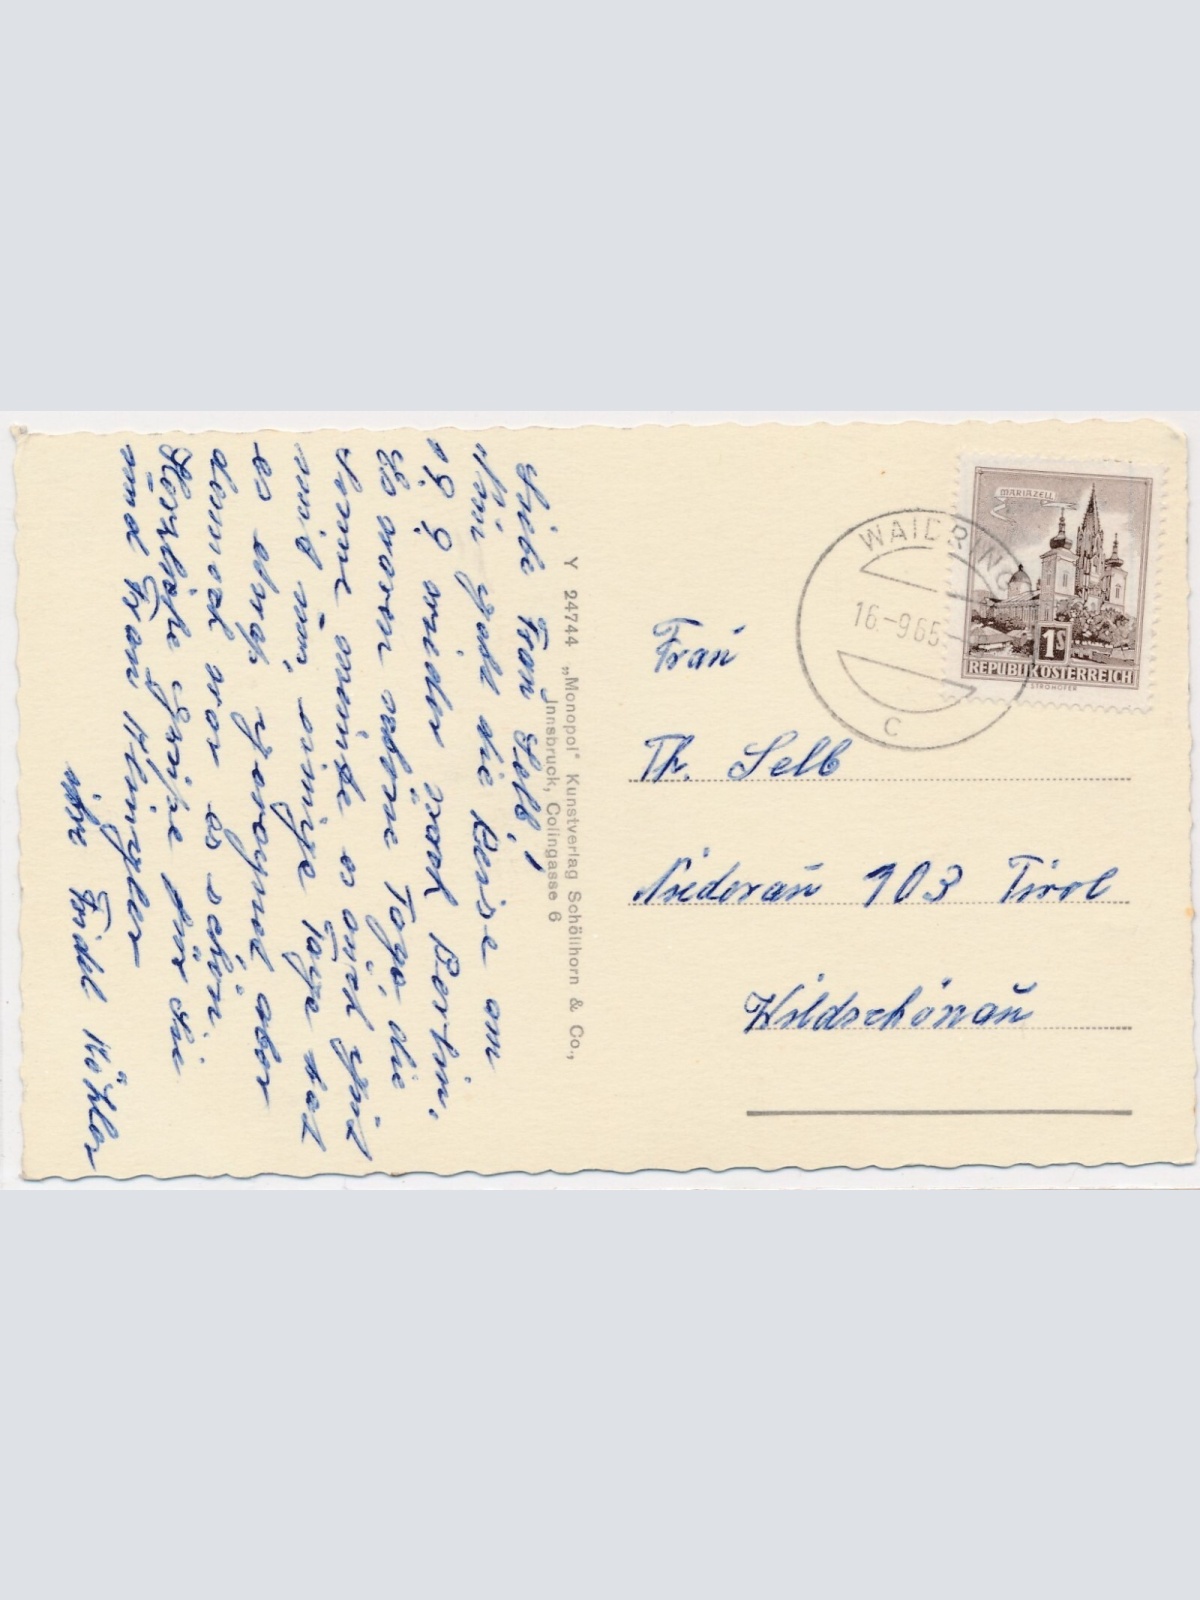 Liebe Frau Selb!
Nun geht die Reise am
19. 9. wieder nach Berlin.
Es waren schöne Tage, die
Sonne meinte es auch gut
mit uns, einige Tage hat
es etwas geregnet aber
dennoch war es schön.
Herzliche Grüße für Sie
und Frau Klingler
ihre Fridel Köhler
Y 24744 „Monopol" Kunstverlag Schöllhorn & Co.,
Innsbruck, Colingasse 6
MARIAZELL
1S
REPUBLIK ÖSTERREICH
STROHOFER
WAIDRING
16.-9.65.
C
Frau
Th. Selb
Niederau 103 Tirol
Wildschönau